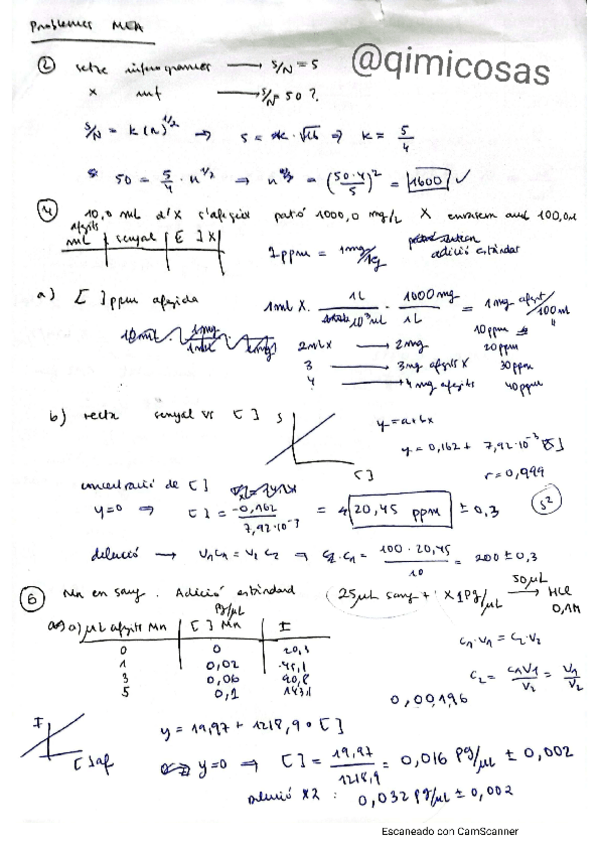 Problemes MEA
@qimicosas
② setze interogrames ⟶ S/N = 5
x inf ⟶ S/N = 50 ?
S/N = k(n)^1/2 ⇒ 5 = k·√16 ⇒ k = 5/4
50 = 5/4 · n^1/2 ⇒ n = (50·4/5)² = 1600 ✓
④ 10,0 mL d'X s'afegeix patró 1000,0 mg/L X enrasem amb 100,0 mL
afegits mL | senyal | [ ] X
1 ppm = 1mg/kg
addició estàndar
a) [ ] ppm afegida
1mL X · 1L/10³mL · 1000mg/1L = 1mg afegit/100ml
10 ppm
2mL x ⟶ 2mg 20ppm
3 ⟶ 3mg afegits X 30ppm
4 ⟶ 4mg afegits 40ppm
b) recta senyal vs [ ] S
[ ]
y = a+bx
y = 0,162 + 7,92·10⁻³ [ ]
r = 0,999
concentració de [ ]
y=0 ⇒ [ ] = -0,162/7,92·10⁻³ = 20,45 ppm ± 0,3
s²
dilució ⟶ V₁C₁ = V₂C₂ ⇒ C₁ = 100 · 20,45/10 = 200 ± 0,3
⑥ Mn en sang. Adició estàndard
25μL sang + X 1Pg/μL ⟶ 50μL HCl 0,1M
a) μL afegits Mn | [ ] Mn Pg/μL | I
0 0 20,3
1 0,02 45,1
3 0,06 90,8
5 0,1 143,1
C₁·V₁ = C₂·V₂
C₂ = C₁V₁/V₂ = V₁/V₂
0,00196
I
[ ]af
y = 19,97 + 1218,9·[ ]
y=0 ⇒ [ ] = 19,97/1218,9 = 0,016 Pg/μL ± 0,002
dilució x2 : 0,032 Pg/μL ± 0,002
Escaneado con CamScanner